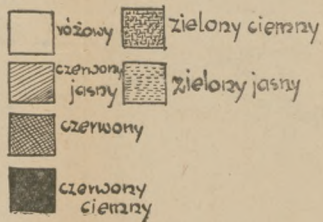 różowy
zielony ciemny
czerwony
jasny
zielony jasny
czerwony
czerwony
ciemny